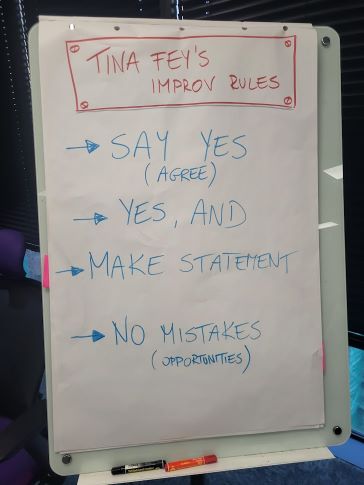 TINA FEY'S
IMPROV RULES
→ SAY YES
(AGREE)
→ YES, AND
→ MAKE STATEMENT
→ NO MISTAKES
(OPPORTUNITIES)